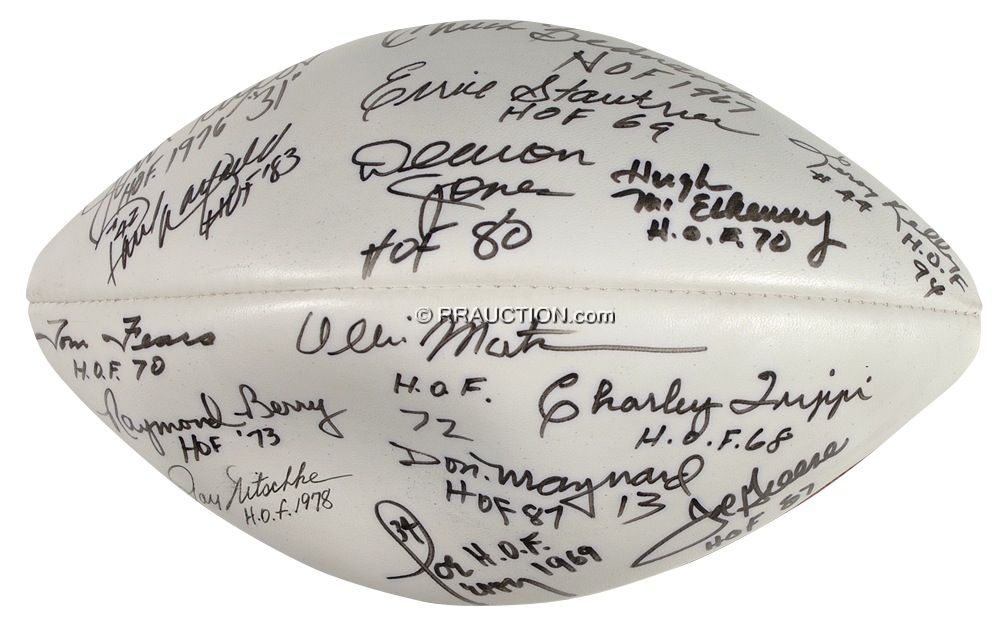 Chuck Bednarik
HOF 1967
Ernie Stautner
HOF 69
HOF. 1976 "31"
#42
Paul Warfield
HOF '83
Deacon
Jones
HOF 80
Hugh
McElhenny
H.O.F. 70
Leroy Kelly
#44
H.O.F
94
© RRAUCTION.com
Tom Fears
H.O.F. 70
Ollie Matson
H.O.F.
72
Raymond Berry
HOF '73
Charley Trippi
H.O.F. 68
Ray Nitschke
H.O.F. 1978
Don Maynard
HOF 87 13
Joe Greene
HOF 87
34
Joe Perry
H.O.F.
1969